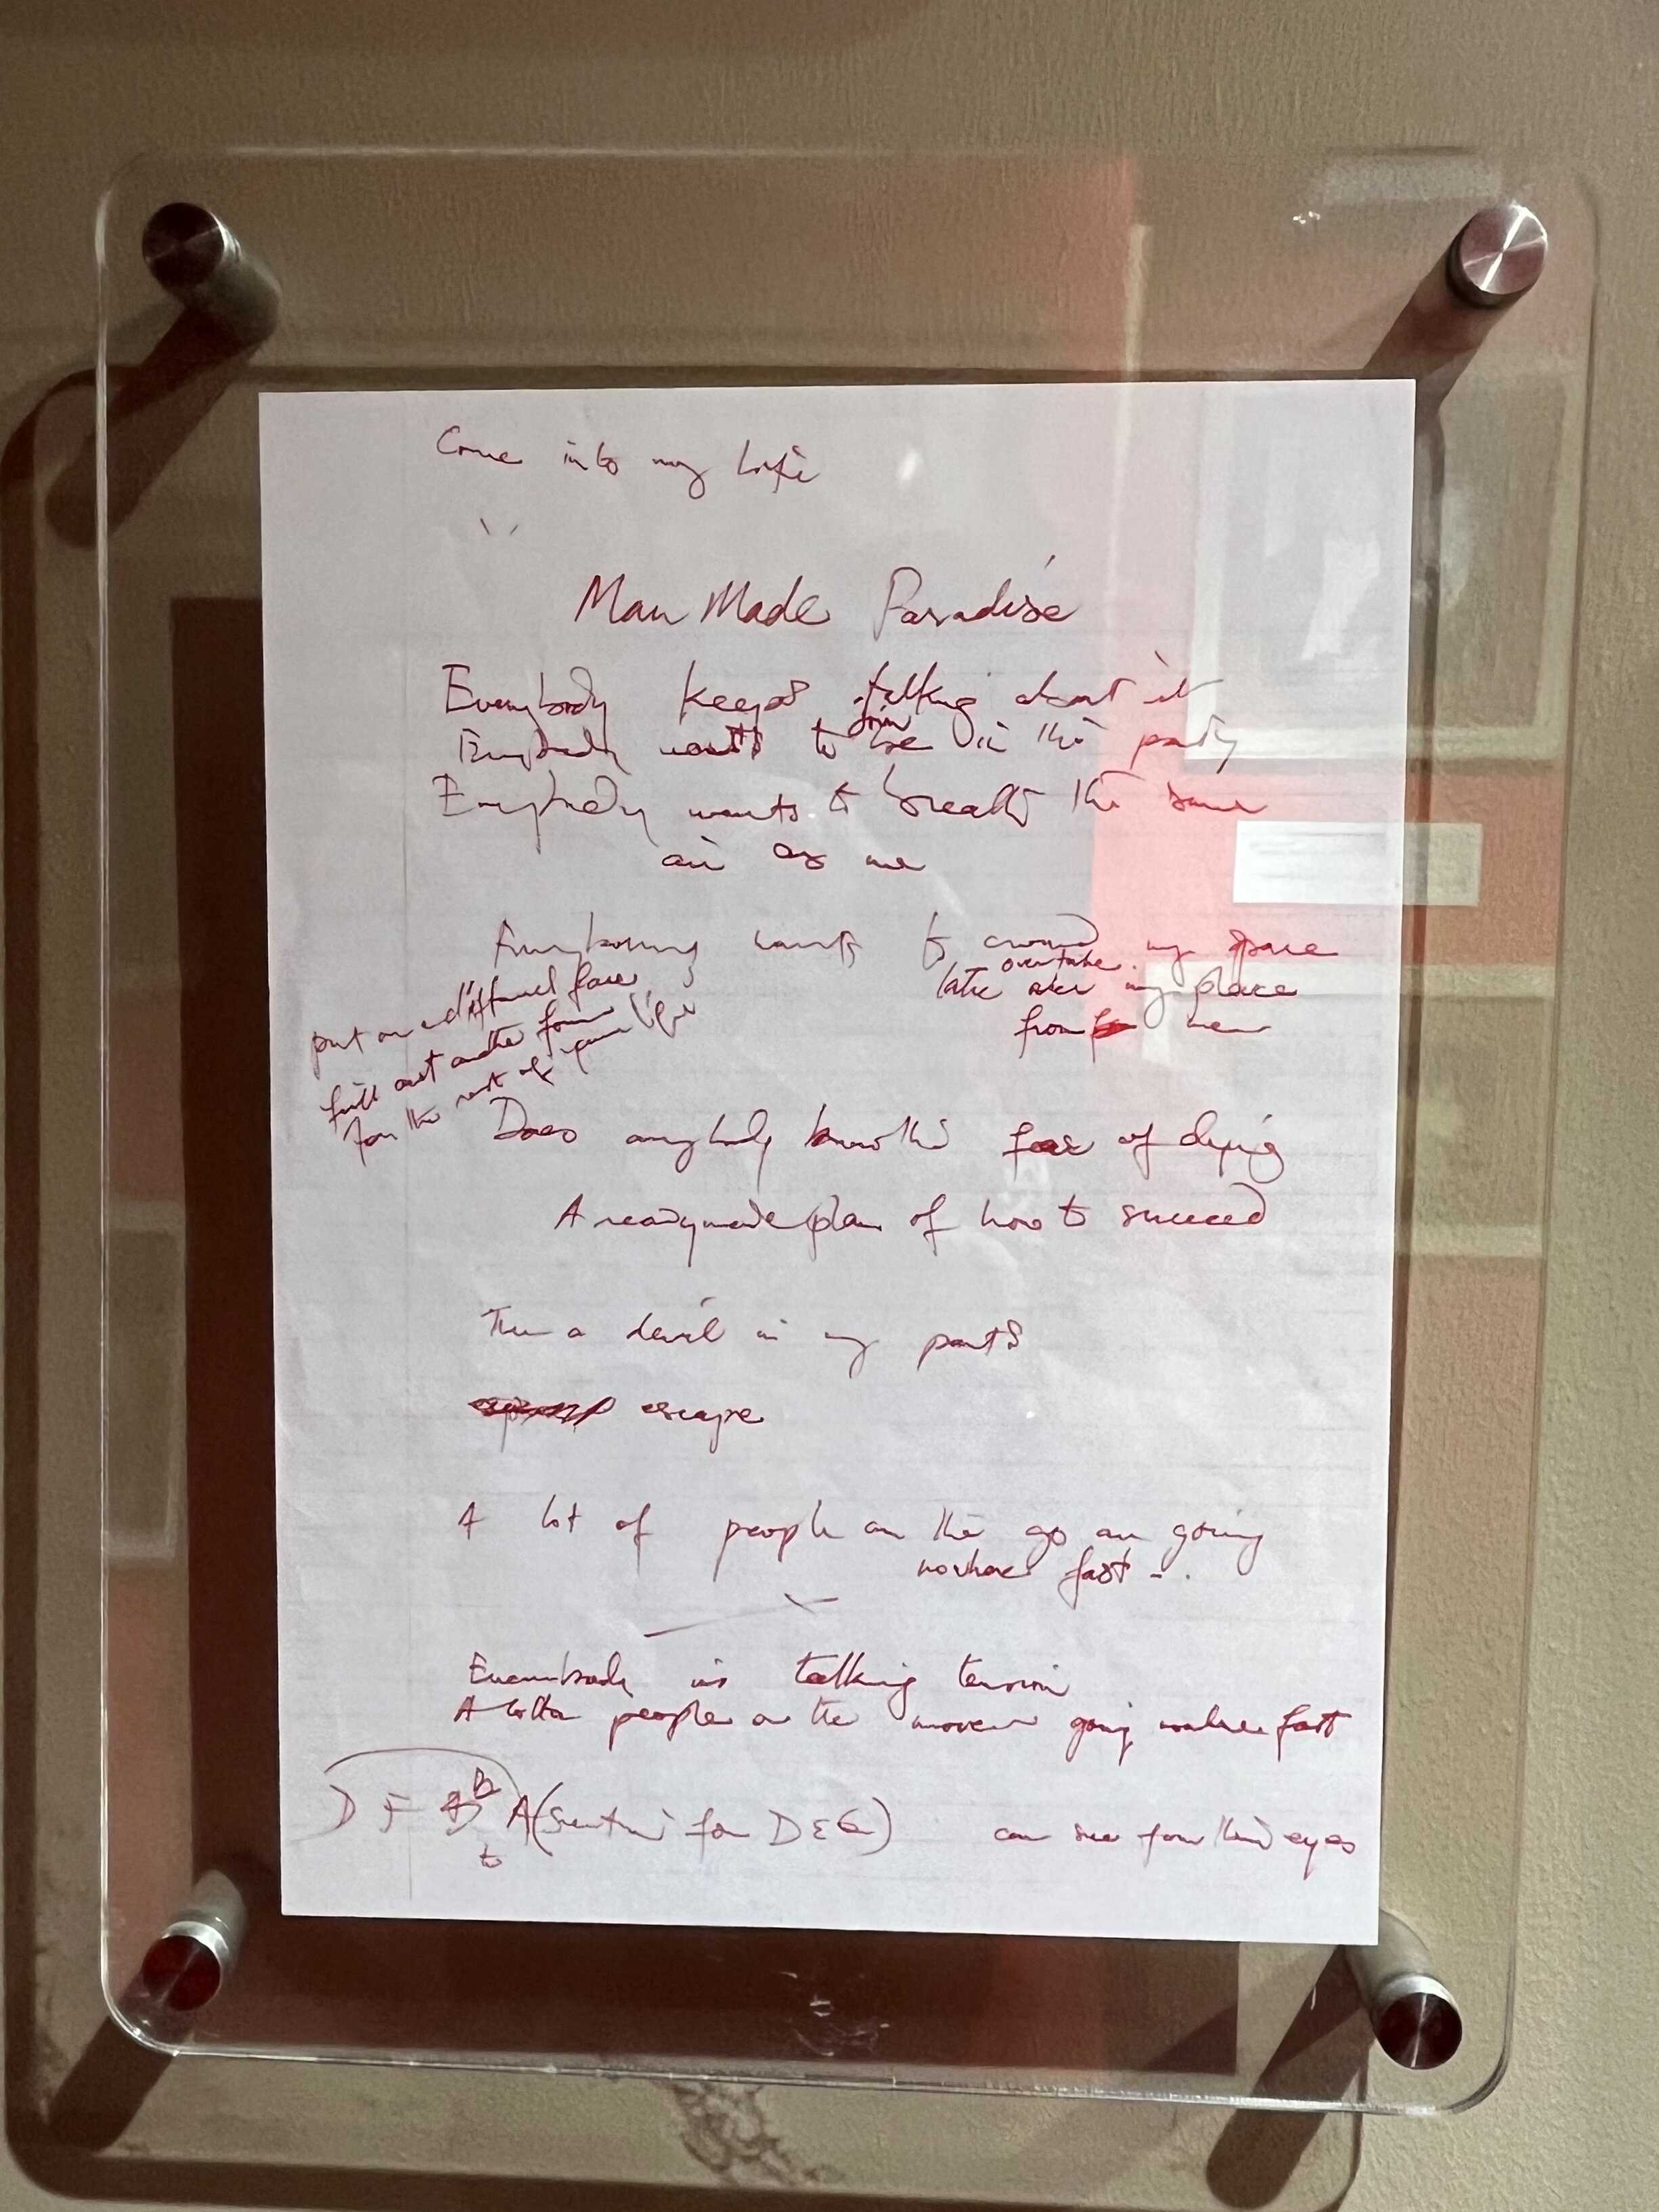 Come into my life
Man Made Paradise
Everybody keeps talking about it
join
Everybody wants to be in the party
Everybody wants to breath the same
air as me
wants to crowd my space
overtake
take over my place
from me
put on a different face
fill out another form
for the rest of your life
Does anybody know the fear of dying
A readymade plan of how to succeed
a devil in my pants
escape
A lot of people on the go are going
nowhere fast - .
Everybody is talking tension
A lotta people on the move going nowhere fast
D F B A ( for D E G)
to
can see from their eyes